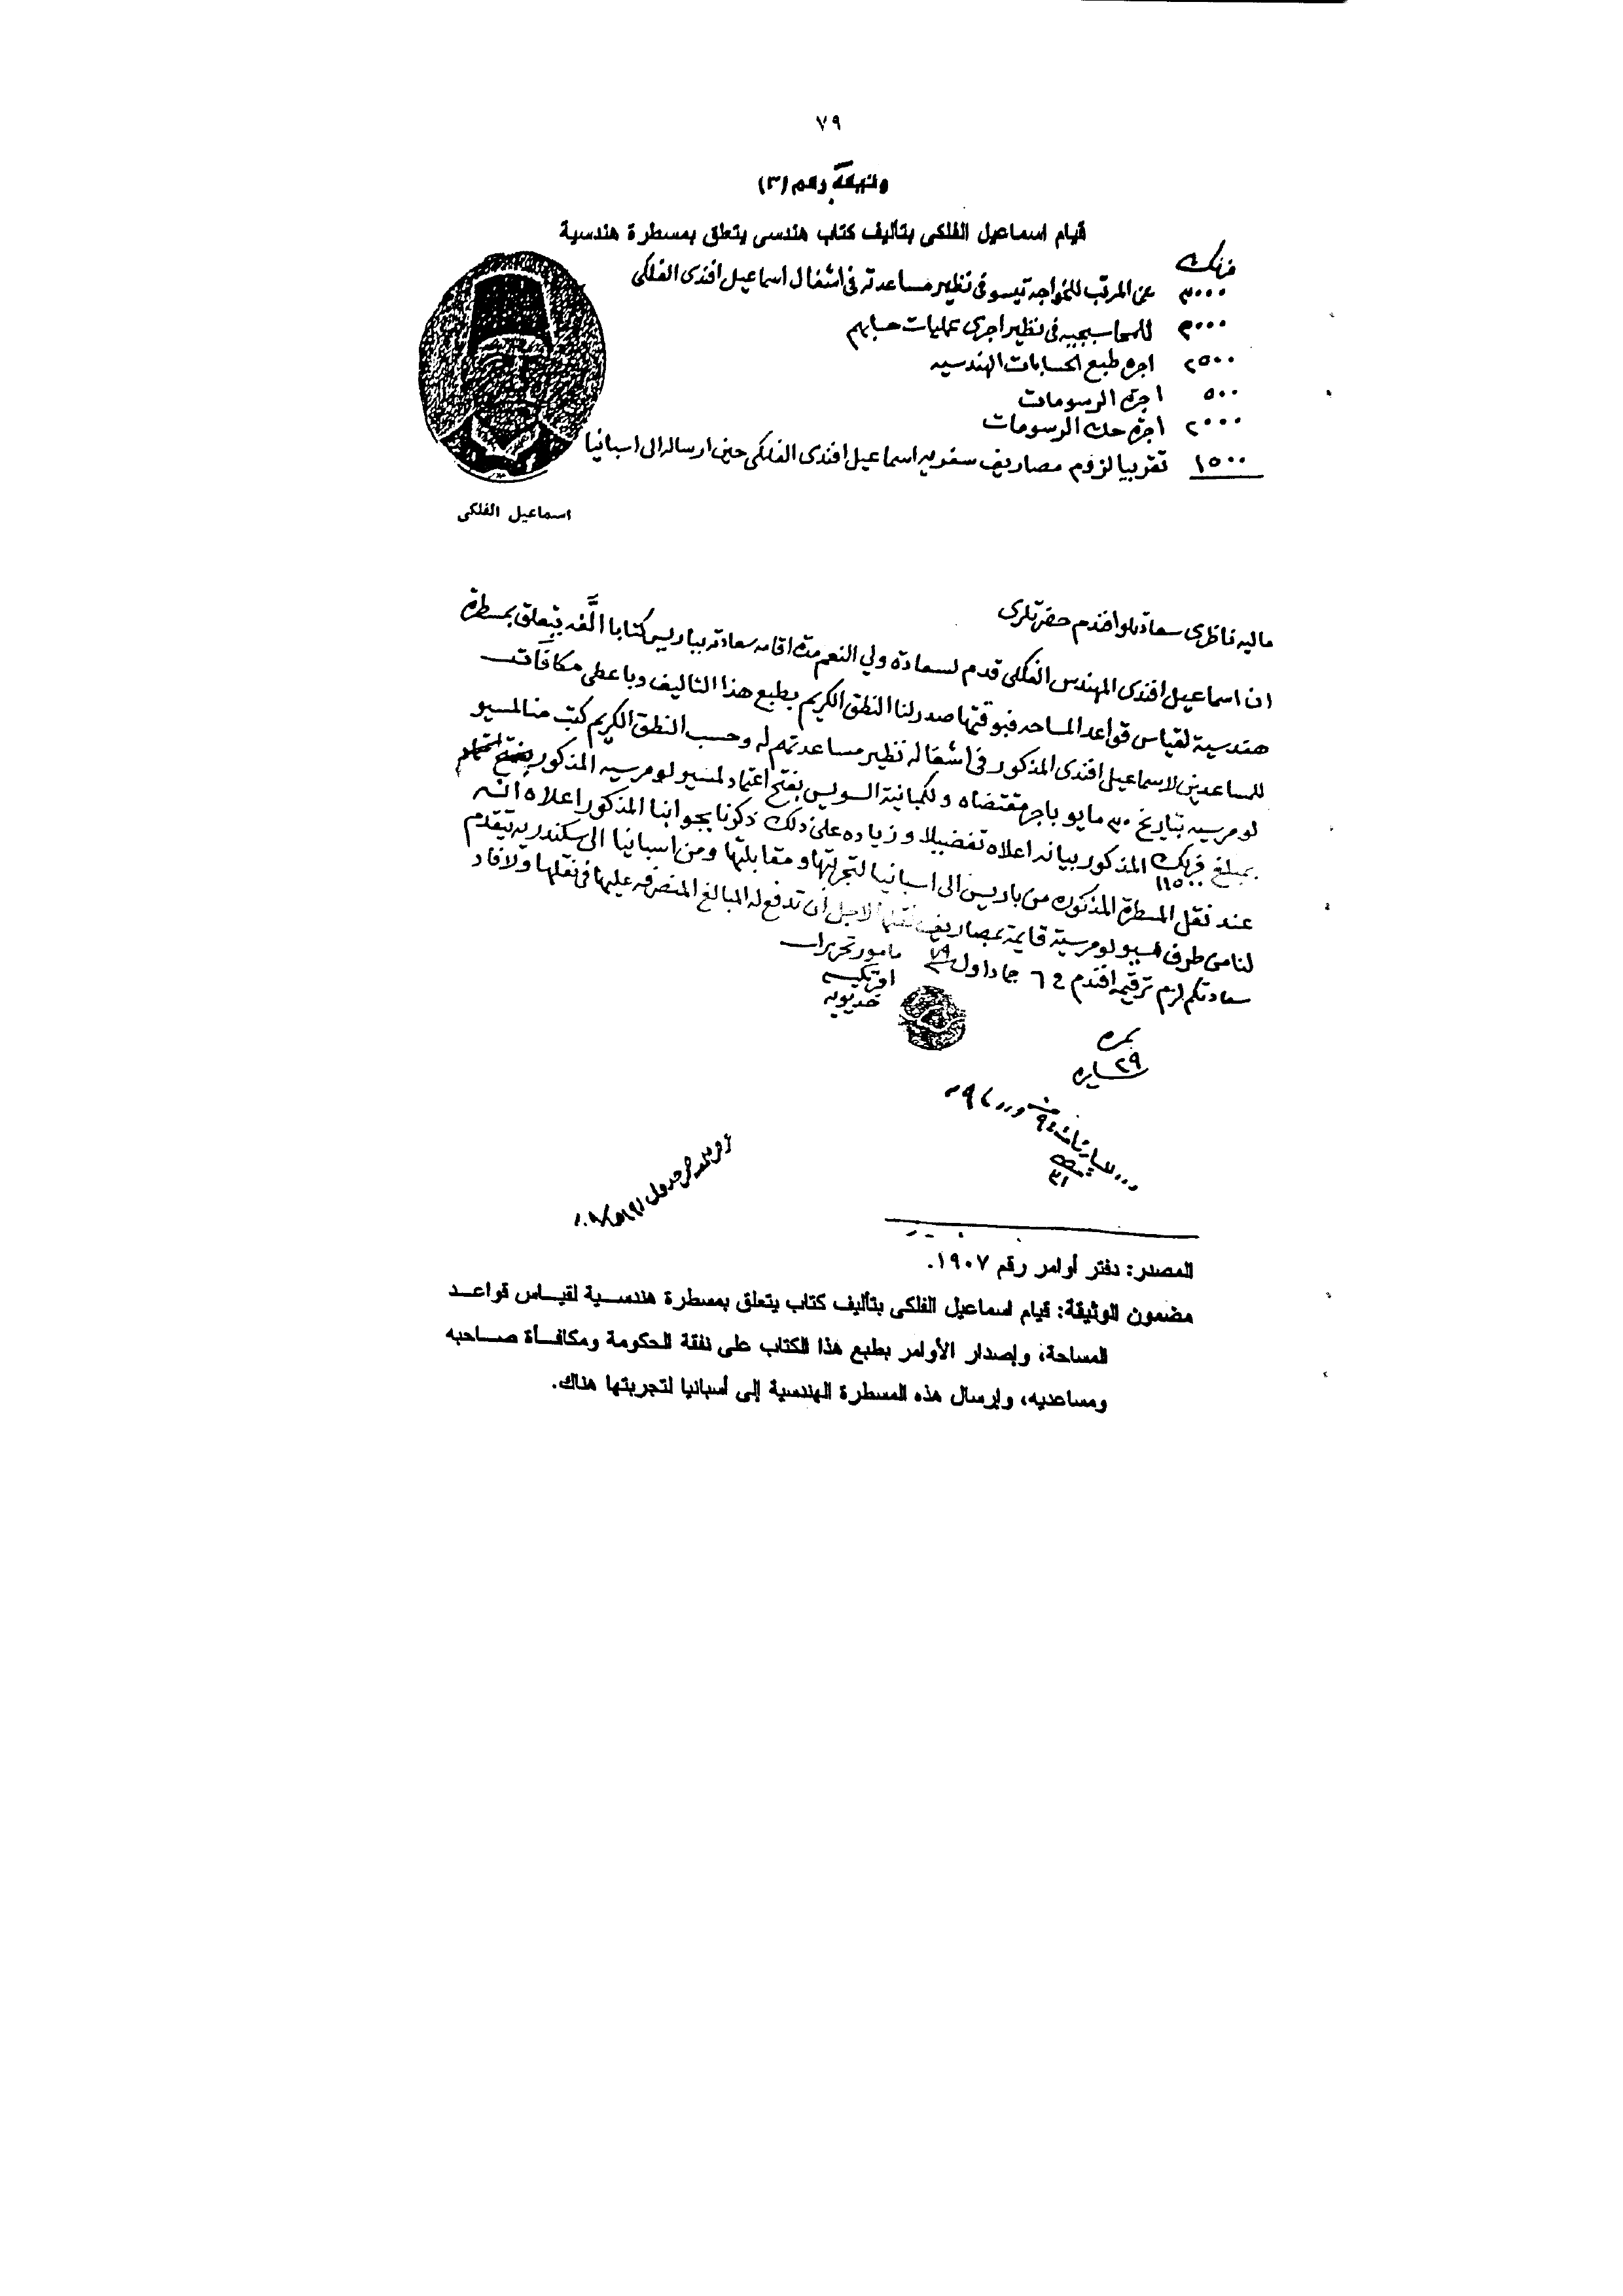 ٧٩
وثيقة رقم (٣)
قيام اسماعيل الفلكى بتأليف كتاب هندسى يتعلق بمسطرة هندسية
فرنك
٣٠٠٠ عن المرتب للخواجه تيسو فى نظير مساعدته فى اشغال اسماعيل افندى الفلكى
٣٠٠٠ للمحاسبجيه فى نظير اجرى عمليات حسابهم
٢٥٠٠ اجره طبع الحسابات الهندسيه
٥٠٠ اجرة الرسومات
٢٠٠٠ اجرة حك الرسومات
١٥٠٠ تقريبا لزوم مصاريف سفريه اسماعيل افندى الفلكى حين ارساله الى اسبانيا
اسماعيل الفلكى
ماليه ناظرى سعادتلو افندم حضرتلرى
ان اسماعيل افندى المهندس الفلكى قدم لسعادة ولي النعم مدة اقامه سعادته بباريس كتابا الَّفه يتعلق بمسطرة
هندسية لقياس قواعد المساحه فبوقتها صدر لنا النطق الكريم بطبع هذا التاليف وباعطى مكافآت
للمساعدين لاسماعيل افندى المذكور فى اشغاله نظير مساعدتهم له وحسب النطق الكريم كتب منا لمسيو
لومرسيه بتاريخ ٣٠ مايو باجر مقتضاه ولكبانية السويس بفتح اعتماد لمسيو لومرسيه المذكور
بمبلغ فرنك ١١٥٠٠ المذكور بيانه اعلاه تفضيلا وزياده على ذلك ذكرنا بجوابنا المذكور اعلاه انه
عند نقل المسطرة المذكوره من باريس الى اسبانيا لتجربتها ومقابلتها ومن اسبانيا الى سكندريه يتقدم
لنا من طرف مسيو لومرسية قايمة بمصاريف نقلها لاجل أن تدفع له المبالغ المنصرفه عليها فى نقلها ولافاد
سعادتكم لزم ترقيمه افندم ٢٤ جماد اول ٧٩ مامور تحريرات
افرنكيه
خديويه
نمره
٢٩ سايره
المصدر: دفتر أوامر رقم ١٩٠٧.
مضمون الوثيقة: قيام اسماعيل الفلكى بتأليف كتاب يتعلق بمسطرة هندسية لقياس قواعد
المساحة، وإصدار الأوامر بطبع هذا الكتاب على نفقة الحكومة ومكافأة صاحبه
ومساعديه، وإرسال هذه المسطرة الهندسية إلى أسبانيا لتجربتها هناك.